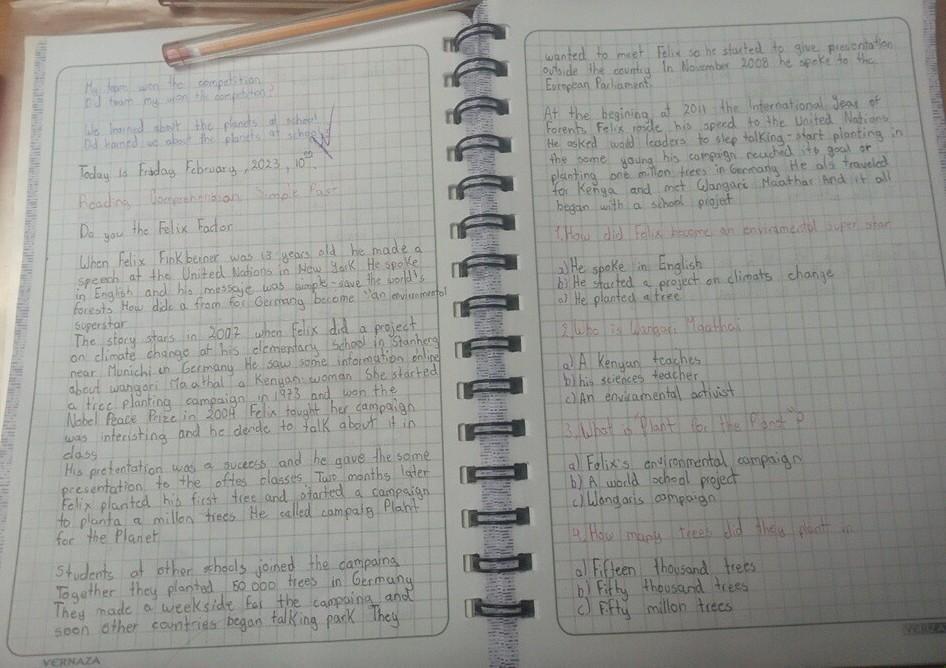 My team won the competition
Did team my won the competition?
We learned about the planets at school
Did learned we about the planets at school
Today is Friday February, 2023, 10
Reading Comprehension Simple Past
Do you the Felix Factor
When Felix Finkbeiner was 13 years old he made a
speech at the United Nations in New York He spoke
in English and his message was simple-save the world's
forests How dide a from for Germang become "an environmental
superstar
The story stars in 2007 when Felix did a project
on climate change at his elementary School in Stanberg
near Munich un Germany He saw some information online
about wangari Maathal a Kenyan woman She started
a tree planting campaign in 1973 and won the
Nobel Peace Prize in 2004 Felix tought her campaign
was interisting and he deride to talk about it in
class
His pretentation was a sucess and he gave the same
presentation to the oftes classes Two months later
Felix planted his first tree and started a campaign
to planta a millon trees He called campaig Plant
for the Planet
Students at other schools joined the campaing
Together they planted 50 000 trees in Germany
They made a weekside for the campaing and
soon other countries began talking park They
VERNAZA
wanted to meet Felix so he started to give presentation
outside the country In November 2008 he spoke to the
European Parliament
At the begining at 2011 the International Year of
Forents Felix rosde his speed to the United Nations
He asked wold leaders to step talking-start planting in
the same young his campaign reached its goal or
planting one millon trees in Germany He als traveled
for Kenya and met Wangari Maathar And it all
began with a school projet
1. How did Felix become an enviramental super star
a) He spoke in English
b) He started a project on climats change
c) He planted a tree
2. Who is Wangari Maathai
a) A Kenyan teaches
b) his sciences teacher
c) An enviramental activist
3. What is "Plant for the Planet"?
a) Felix's environmental campaign
b) A world school project
c) Wangaris campaign
4. How many trees did they plant in
a) Fifteen thousand trees
b) Fifty thousand trees
c) Fifty millon trees